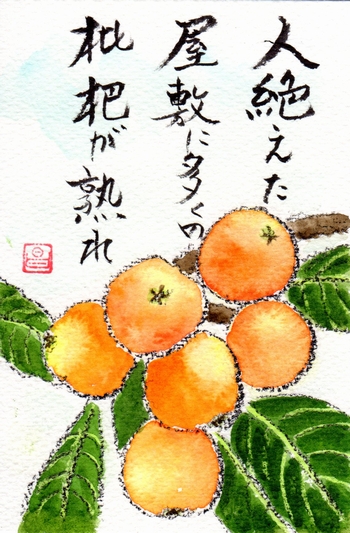 人絶えた
屋敷に多くの
枇杷が熟れ